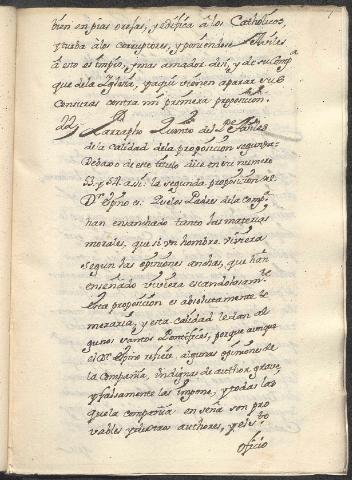 bien en pias orejas, y edifica â los Catholicos,
y turba â los corruptores, y poniendose
â esto es impio, y mas amador de si, y de su Comp.ª
que de la Iglesia, y aqui vienen aparar sus
Censuras contra mi primera proposicion.
22 Parrapho Quinto del P.e
de la calidad de la proposicion segunda.
Debaxo de este titulo dice en su numero
53. y 54. assi: la segunda proposicion del
D.r espino es: Que los Padres de la compª
han ensanchado tanto las materias
morales, que si un hombre viviera
segun las opiniones anchas, que han
enseñado viviera escandalosam.te
esta proposicion es absolutamente te
meraria, y esta calidad le dan al
gunos santos Pontifices, porque aunque
el D.r espino refiere algunas opiniones de
la Compañia, indignas de author grave,
y falsamente las impone, y todas las
que la compañia enseña son pro
vables y de otros authores, y el s.to
oficio